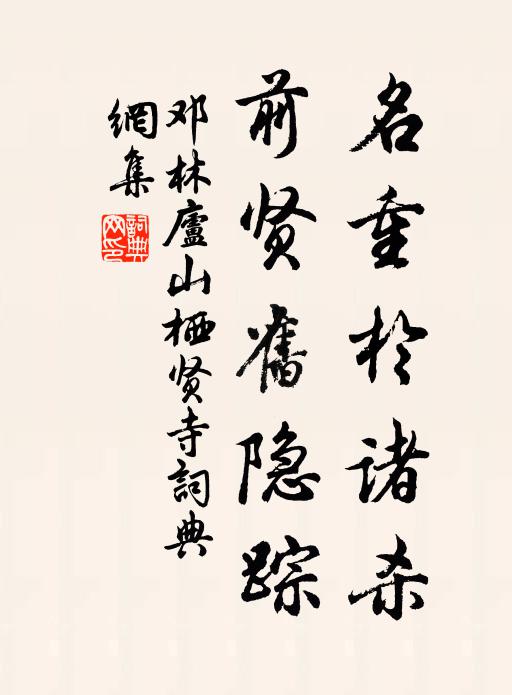 名重於诸杀
前贤舊隐踪
邓林廬山栖贤寺詞典
網集
詞典
网印